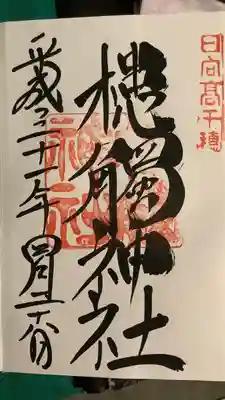 日向髙千穗
槵觸神社
平成三十一年四月二十八日